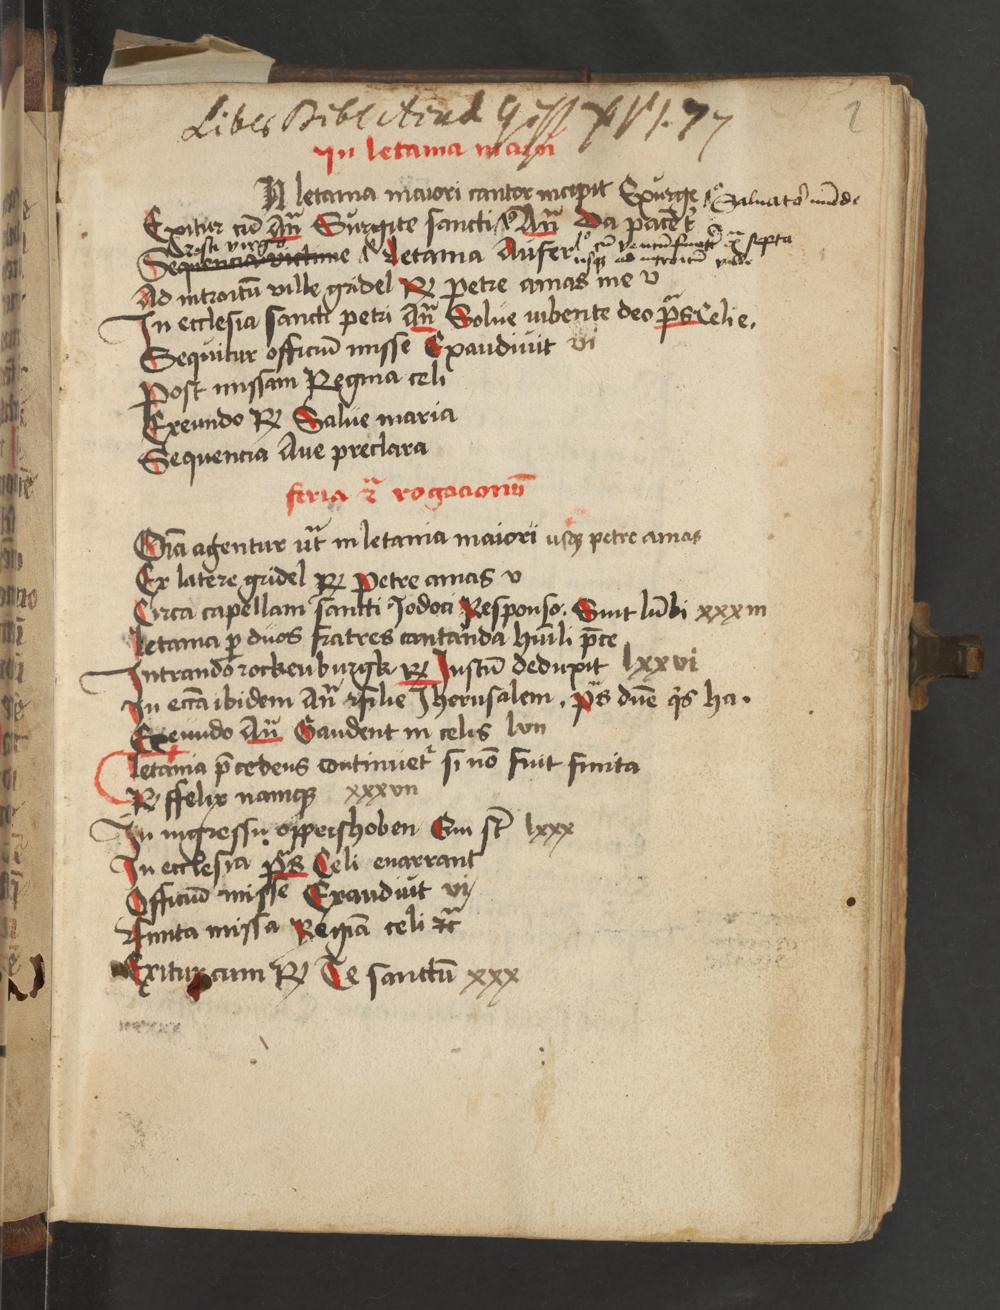 Liber Bibl Acad Giss
2
In letania maiori
In letania maiori cantor incepit Exurge Saluator mūdi
Exitur cū Añ Surgite sancti Añ Da pacē
virgo
Sequencia victime letania Aufer
Ad introitū ville gridel R petre amas me v
In ecclesia sancti petri Añ Solue iubente deo ps Celi e.
Sequitur officiū misse Exaudiuit vi
Post missam Regina celi
Exeundo R Salue maria
Sequencia Aue preclara
feria 2a rogacionū
Oīa agentur ut in letania maiori usq petre amas
Ex latere gridel R Petre amas v
Circa capellam sancti Jodoci Responso. Sint lūbi xxxiii
letania p duos fratres cantanda huīli pce
Intrando rockenburgk R Justū deduxit lxxvi
In ecca ibidem Añ filie Jherusalem. ps dne qs ha.
Exeundo Añ Gaudent in celis lvii
letania pcedens continuet si nō fuit finita
R ffelix namq xxxvii
In ingressu oppershoben lxxx
In ecclesia ps Celi enarrant
Officiū misse Exaudiuit vi
finita missa Regīa celi rc
Exitur cum R Te sanctū xxx